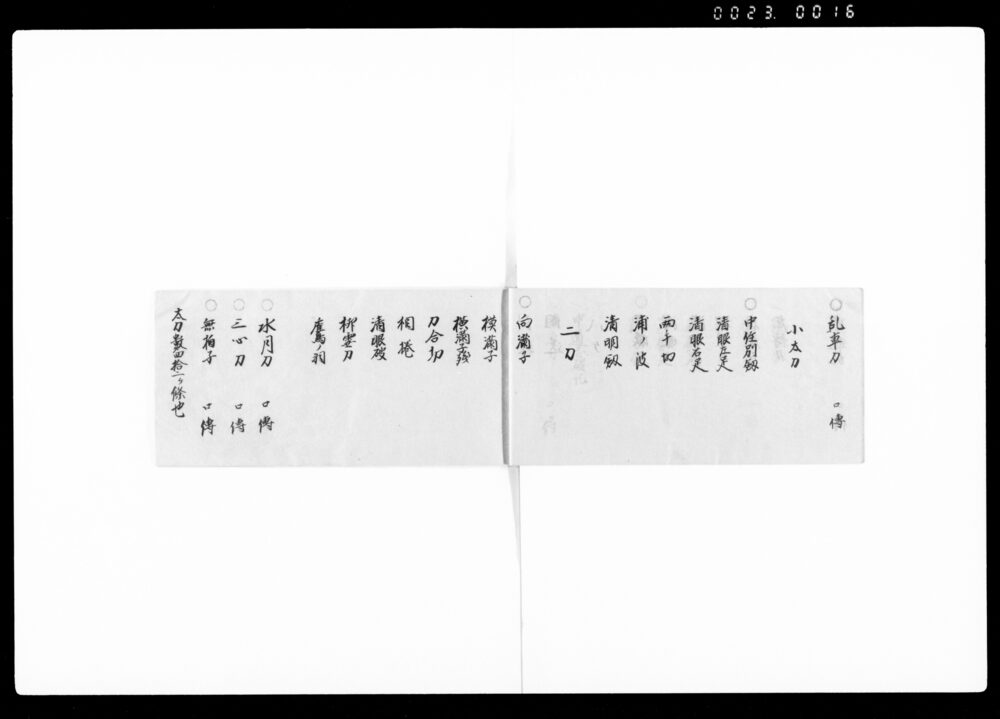 0023. 0016
○乱車刀 口傳
小太刀
○中住別劔
清眼左足
清眼右足
両手切
浦波
清明劔
二刀
○向満子
横満子
横満子残
刀合切
相捲
清眼破
柳雲刀
鷹ノ羽
○水月刀 口傳
○三心刀 口傳
○無拍子 口傳
太刀数四拾一ヶ條也